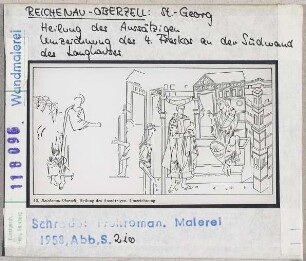 REICHENAU-OBERZELL: St. Georg
Heilung des Aussätzigen
Umzeichnung des 4. Freskos an der Südwand
des Langhauses
Wandmalerei
118096
10. Reichenau-Oberzell, Heilung des Aussätzigen. Umzeichnung
Schrade: Frühroman. Malerei
1958, Abb. S. 210